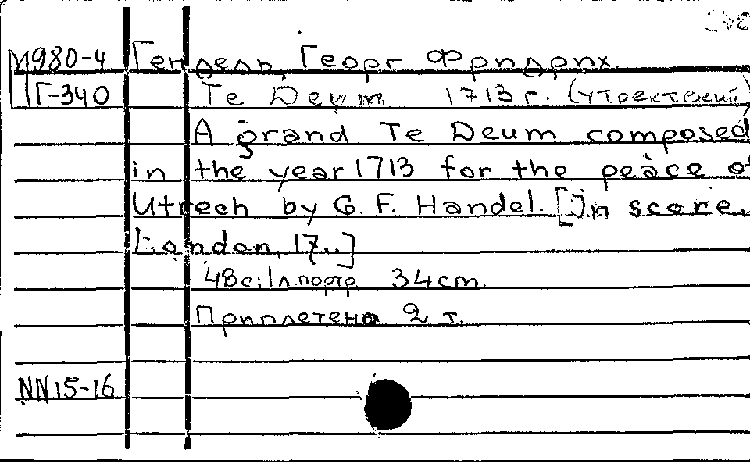 М980-4 Гендель, Георг Фридрих.
Г-340 Te Deum 1713 г. (Утрехтский)
A grand Te Deum composed
in the year 1713 for the peace of
Utrech by G. F. Handel. [In score.
London, 17..]
48 с. 1 л. портр. 34 cm.
Приплетено 2 т.
NN 15-16